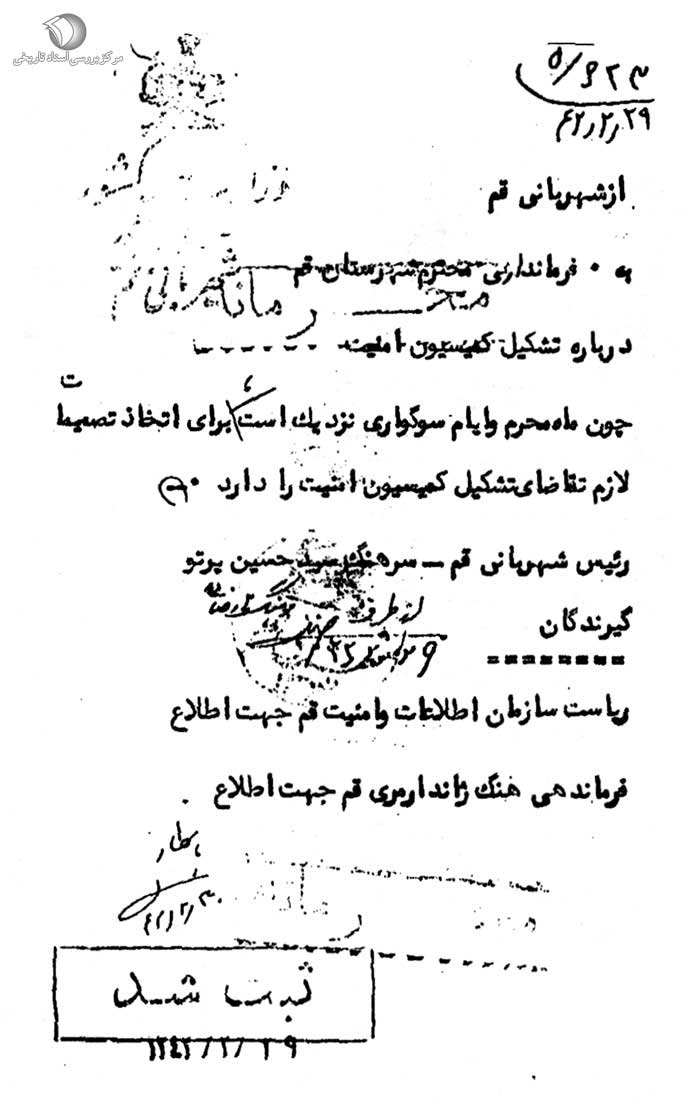 مرکز بررسی اسناد تاریخی
۵/۶۲۳
۴۲/۲/۲۹
از شهربانی قم
به ۰ فرمانداری محترم شهرستان قم
محرمانه
شهربانی قم
درباره تشکیل کمیسیون امنیت
چون ماه محرم وایام سوگواری نزدیك است برای اتخاذ تصمیمات
لازم تقاضای تشکیل کمیسیون امنیت را دارد ۰
رئیس شهربانی قم – سرهنگ سید حسین پرتو
از طرف
گیرندگان
ریاست سازمان اطلاعات وامنیت قم جهت اطلاع
فرماندهی هنگ ژاندارمری قم جهت اطلاع
۴۲/۲/۳۰
محرمانه
ثبت شد
۱۳۴۲/۲/۲۹